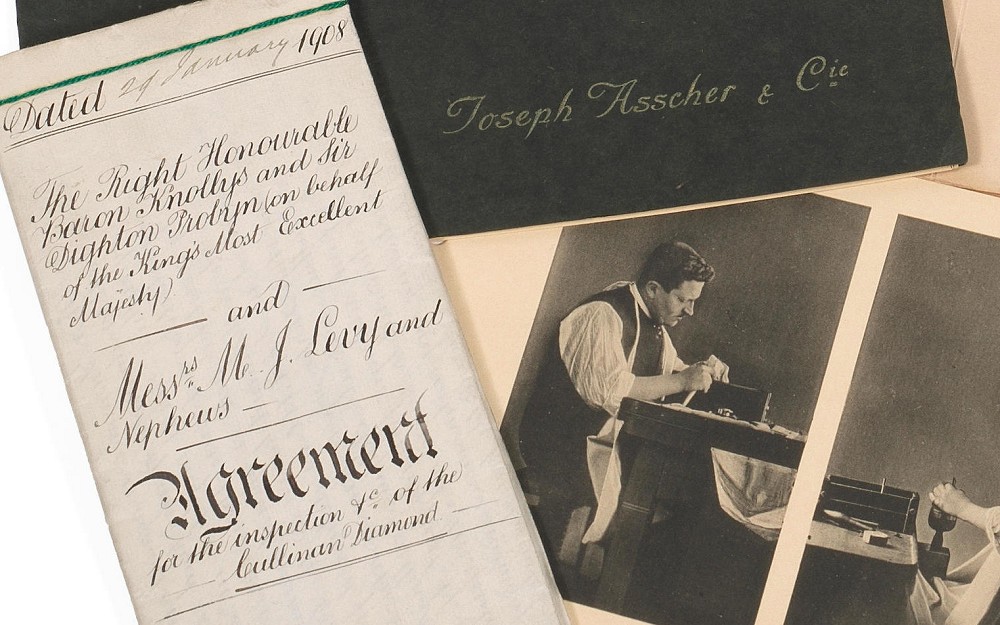 Dated 29 January 1908
The Right Honourable
Baron Knollys and Sir
Dighton Probyn (on behalf
of the King's Most Excellent
Majesty)
and
Messrs. M. J. Levy and
Nephews
Agreement
for the inspection &c. of the
Cullinan Diamond
Joseph Asscher & Cie